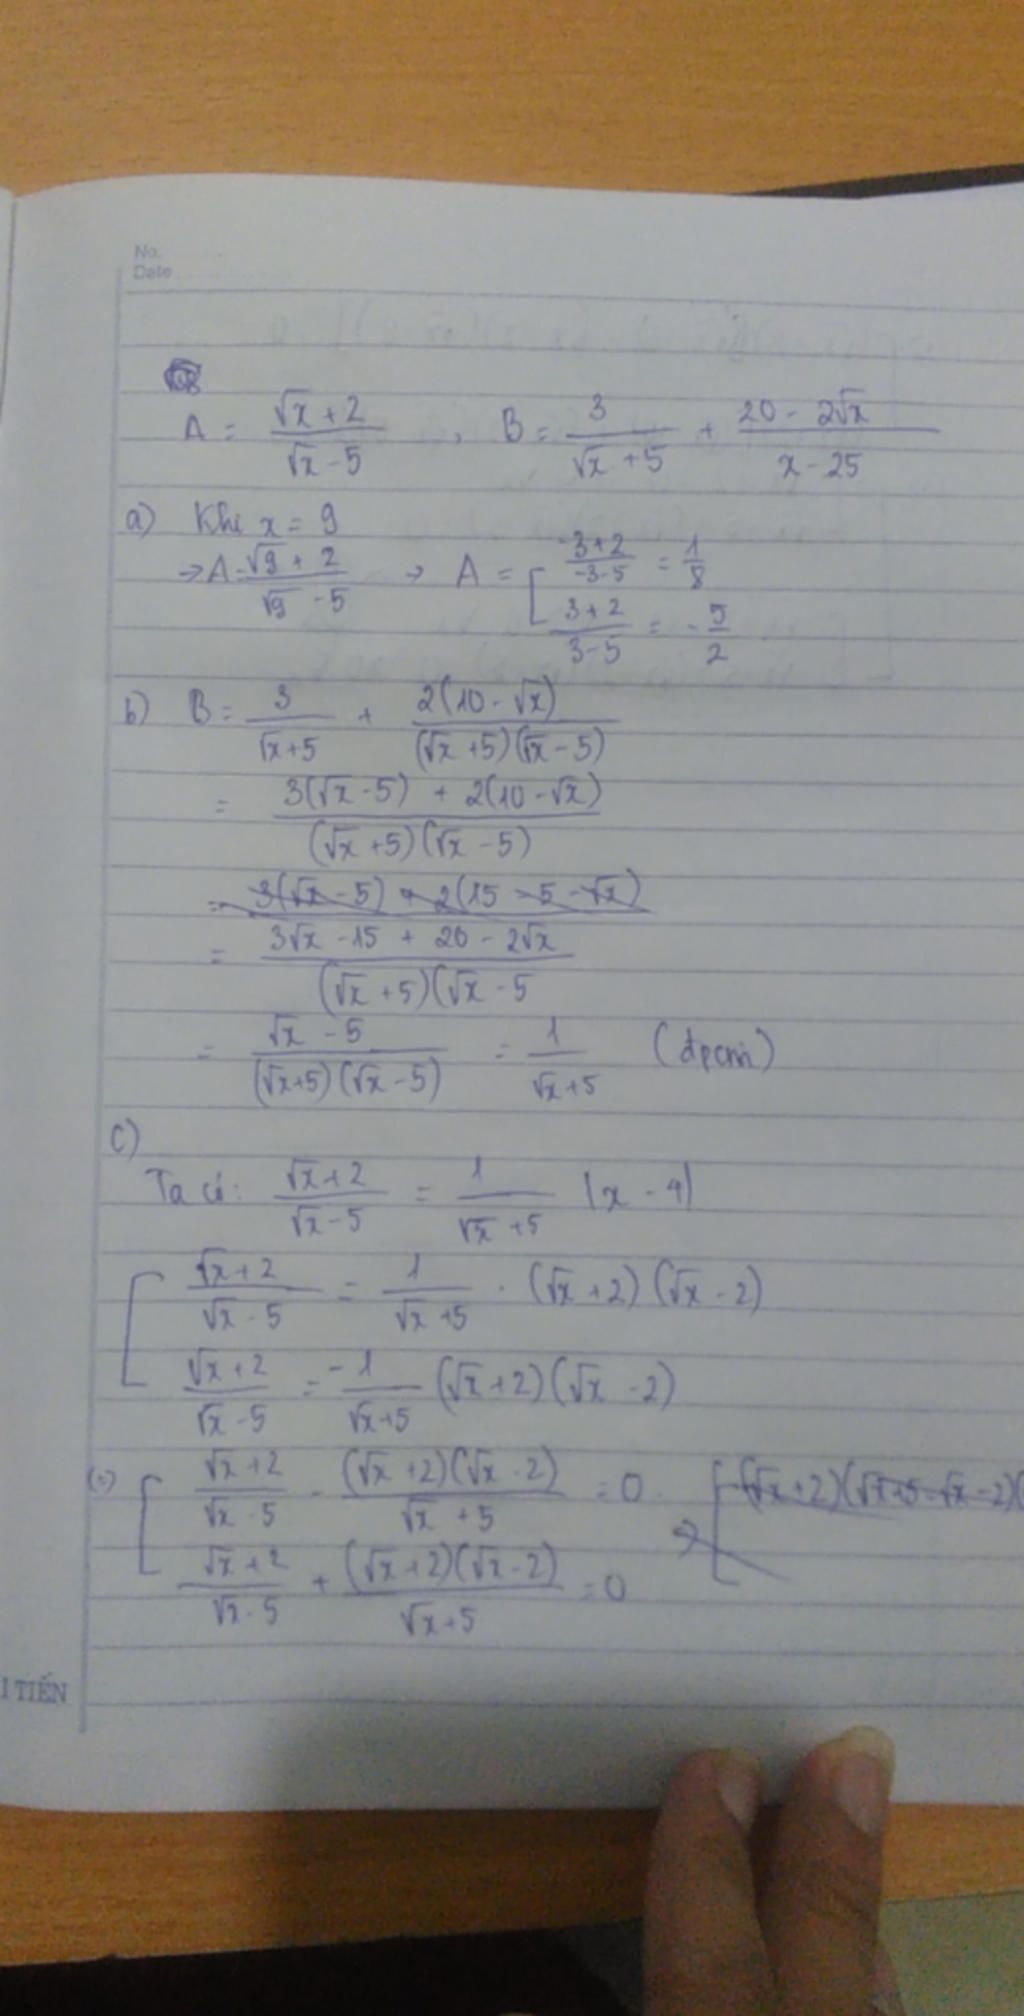 No.
Date
A = (√x + 2)/(√x - 5) , B = 3/(√x + 5) + (20 - 2√x)/(x - 25)
a) Khi x = 9
→ A = (√9 + 2)/(√9 - 5) → A = [ (-3+2)/(-3-5) = 1/8
(3+2)/(3-5) = -5/2
b) B = 3/(√x+5) + 2(10 - √x)/((√x+5)(√x-5))
= (3(√x-5) + 2(10-√x))/((√x+5)(√x-5))
= 3(√x-5) + 2(15-5-√x)
= (3√x - 15 + 20 - 2√x)/((√x+5)(√x-5
= (√x - 5)/((√x+5)(√x-5)) = 1/(√x+5) (đpcm)
c)
Ta có: (√x+2)/(√x-5) = 1/(√x+5) |x - 4|
[ (√x+2)/(√x-5) = 1/(√x+5) . (√x+2)(√x-2)
(√x+2)/(√x-5) = -1/(√x+5) (√x+2)(√x-2)
[ (√x+2)/(√x-5) - (√x+2)(√x-2)/(√x+5) = 0
(√x+2)/(√x-5) + (√x+2)(√x-2)/(√x+5) = 0
I TIẾN